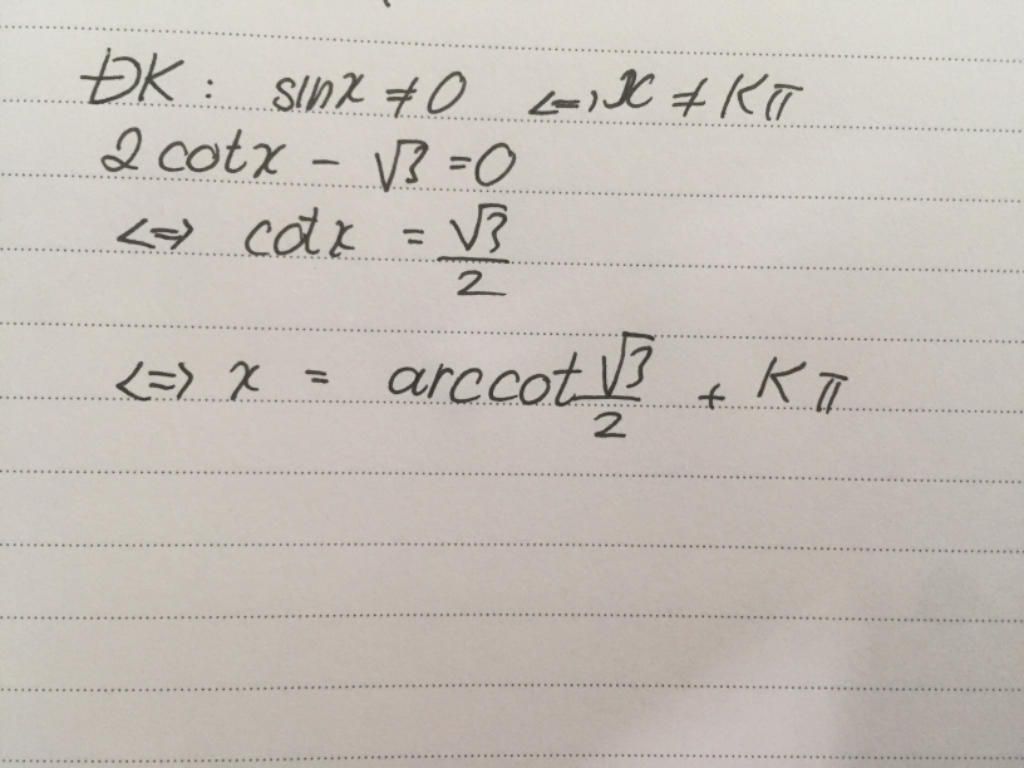 ĐK: sinx ≠ 0 <=> x ≠ Kπ
2 cotx - √3 = 0
<=> cotx = √3/2
<=> x = arccot √3/2 + Kπ